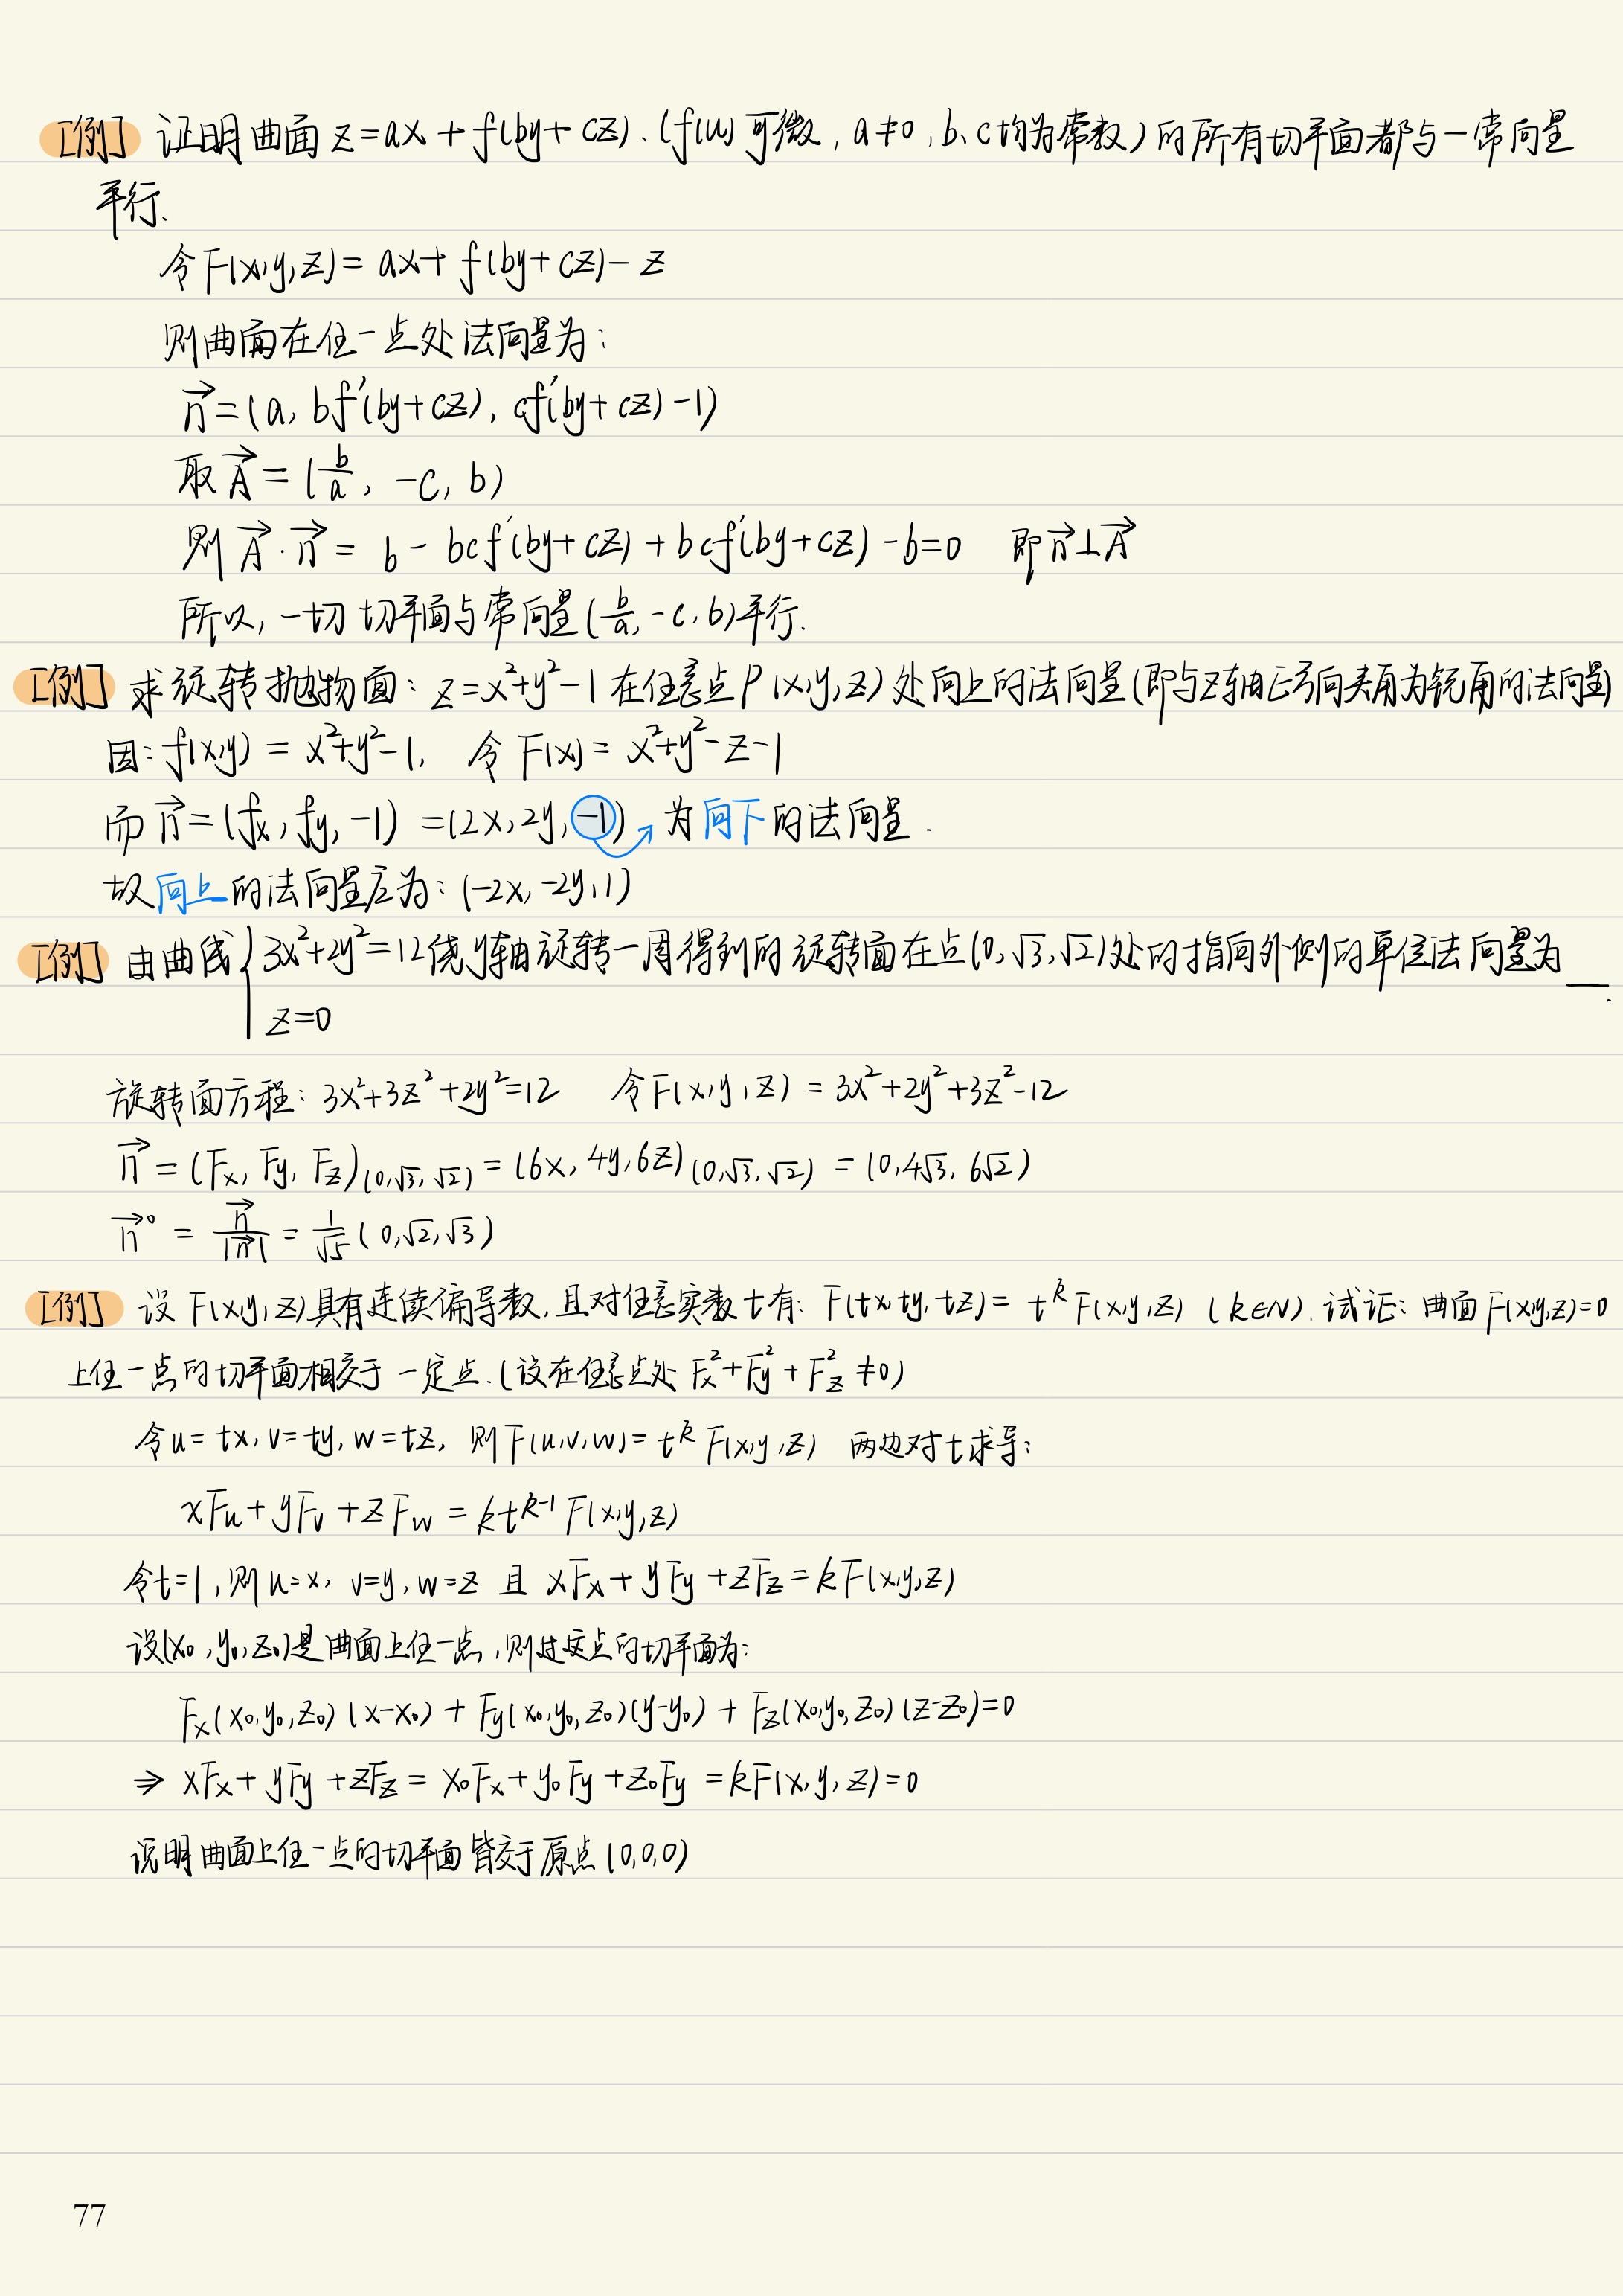 [例] 证明曲面 z=ax+f(by+cz)、(f(u)可微, a≠0, b、c均为常数)的所有切平面都与一常向量
平行.
令F(x,y,z)=ax+f(by+cz)-z
则曲面在任一点处法向量为:
n⃗=(a, bf'(by+cz), cf'(by+cz)-1)
取A⃗=(b/a, -c, b)
则 A⃗·n⃗= b-bcf'(by+cz)+bcf'(by+cz)-b=0 即n⃗⊥A⃗
所以, 一切切平面与常向量(b/a, -c, b)平行.
[例] 求旋转抛物面: z=x²+y²-1在任意点P(x,y,z)处向上的法向量(即与z轴正方向夹角为锐角的法向量)
因: f(x,y)=x²+y²-1, 令F(x)=x²+y²-z-1
而n⃗=(fx, fy, -1)=(2x, 2y, -1) 为向下的法向量.
故向上的法向量应为: (-2x, -2y, 1)
[例] 由曲线{3x²+2y²=12绕y轴旋转一周得到的旋转面在点(0,√3,√2)处的指向外侧的单位法向量为__.
z=0
旋转面方程: 3x²+3z²+2y²=12 令F(x,y,z)=3x²+2y²+3z²-12
n⃗=(Fx, Fy, Fz)(0,√3,√2)=(6x, 4y, 6z)(0,√3,√2)=(0, 4√3, 6√2)
n⃗°=n⃗/|n⃗|=1/√5(0,√2,√3)
[例] 设F(x,y,z)具有连续偏导数, 且对任意实数t有: F(tx,ty,tz)=t^k F(x,y,z) (k∈N). 试证: 曲面F(x,y,z)=0
上任一点的切平面相交于一定点.(设在任意点处 Fx²+Fy²+Fz²≠0)
令u=tx, v=ty, w=tz, 则F(u,v,w)=t^k F(x,y,z) 两边对t求导:
xFu+yFv+zFw=kt^(k-1) F(x,y,z)
令t=1, 则u=x, v=y, w=z 且 xFx+yFy+zFz=kF(x,y,z)
设(x₀,y₀,z₀)是曲面上任一点, 则过该点的切平面为:
Fx(x₀,y₀,z₀)(x-x₀)+Fy(x₀,y₀,z₀)(y-y₀)+Fz(x₀,y₀,z₀)(z-z₀)=0
⇒ xFx+yFy+zFz=x₀Fx+y₀Fy+z₀Fy=kF(x,y,z)=0
说明曲面上任一点的切平面皆交于原点(0,0,0)
77